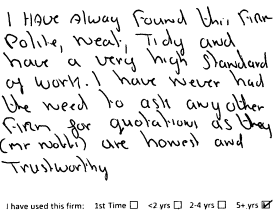 I have alway found this firm
Polite, neat, Tidy and
have a very high standard
of work. I have never had
the need to ask any other
firm for quotations as they
(mr notti) are honest and
Trustworthy
I have used this firm: 1st Time ☐ <2 yrs ☐ 2-4 yrs ☐ 5+ yrs ☑